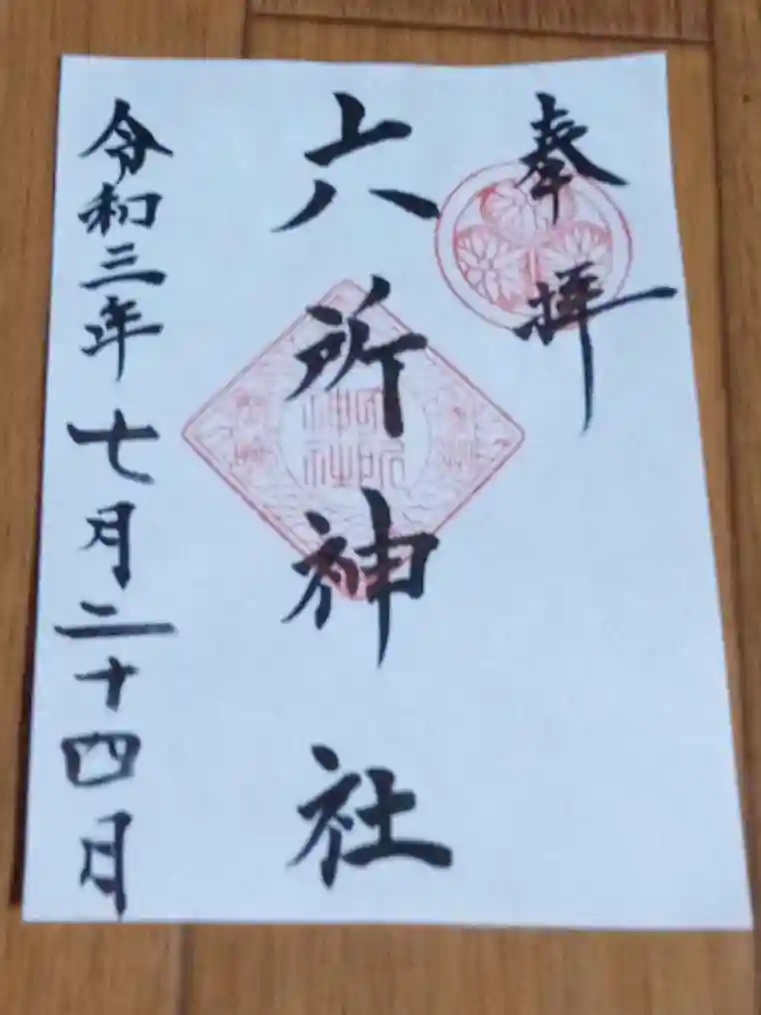 奉拝
六所神社
令和三年七月二十四日